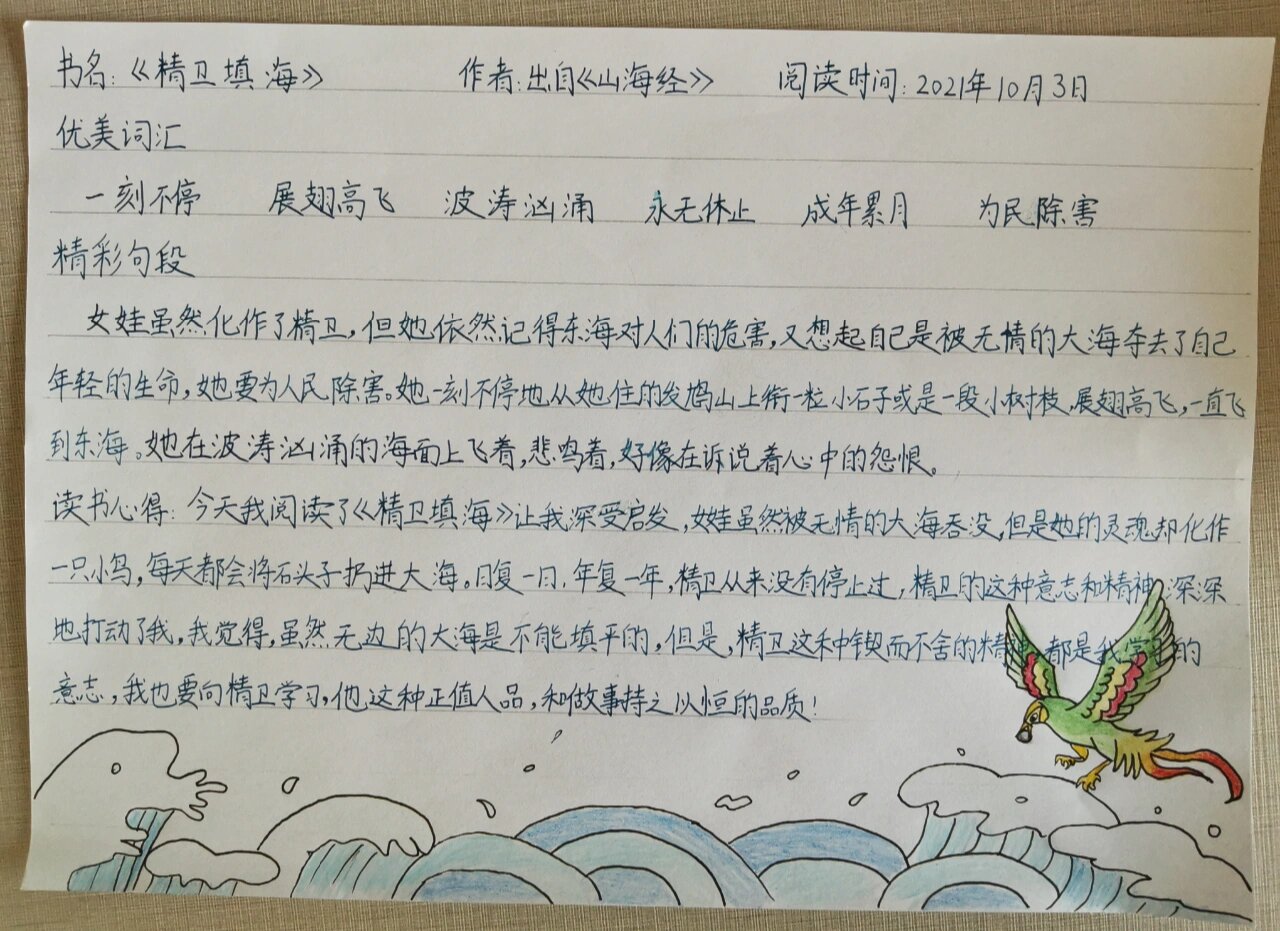 书名:《精卫填海》 作者:出自《山海经》 阅读时间:2021年10月3日
优美词汇
一刻不停 展翅高飞 波涛汹涌 永无休止 成年累月 为民除害
精彩句段
女娃虽然化作了精卫,但她依然记得东海对人们的危害,又想起自己是被无情的大海夺去了自己
年轻的生命,她要为人民除害。她一刻不停地从她住的发鸠山上衔一粒小石子或是一段小树枝,展翅高飞,一直飞
到东海。她在波涛汹涌的海面上飞着,悲鸣着,好像在诉说着心中的怨恨。
读书心得:今天我阅读了《精卫填海》让我深受启发,女娃虽然被无情的大海吞没,但是她的灵魂却化作
一只小鸟,每天都会将石头子扔进大海。日复一日,年复一年,精卫从来没有停止过,精卫的这种意志和精神深深
地打动了我,我觉得,虽然无边的大海是不能填平的,但是,精卫这种锲而不舍的精 都是我学习的
意志,我也要向精卫学习,他这种正值人品,和做事持之以恒的品质!